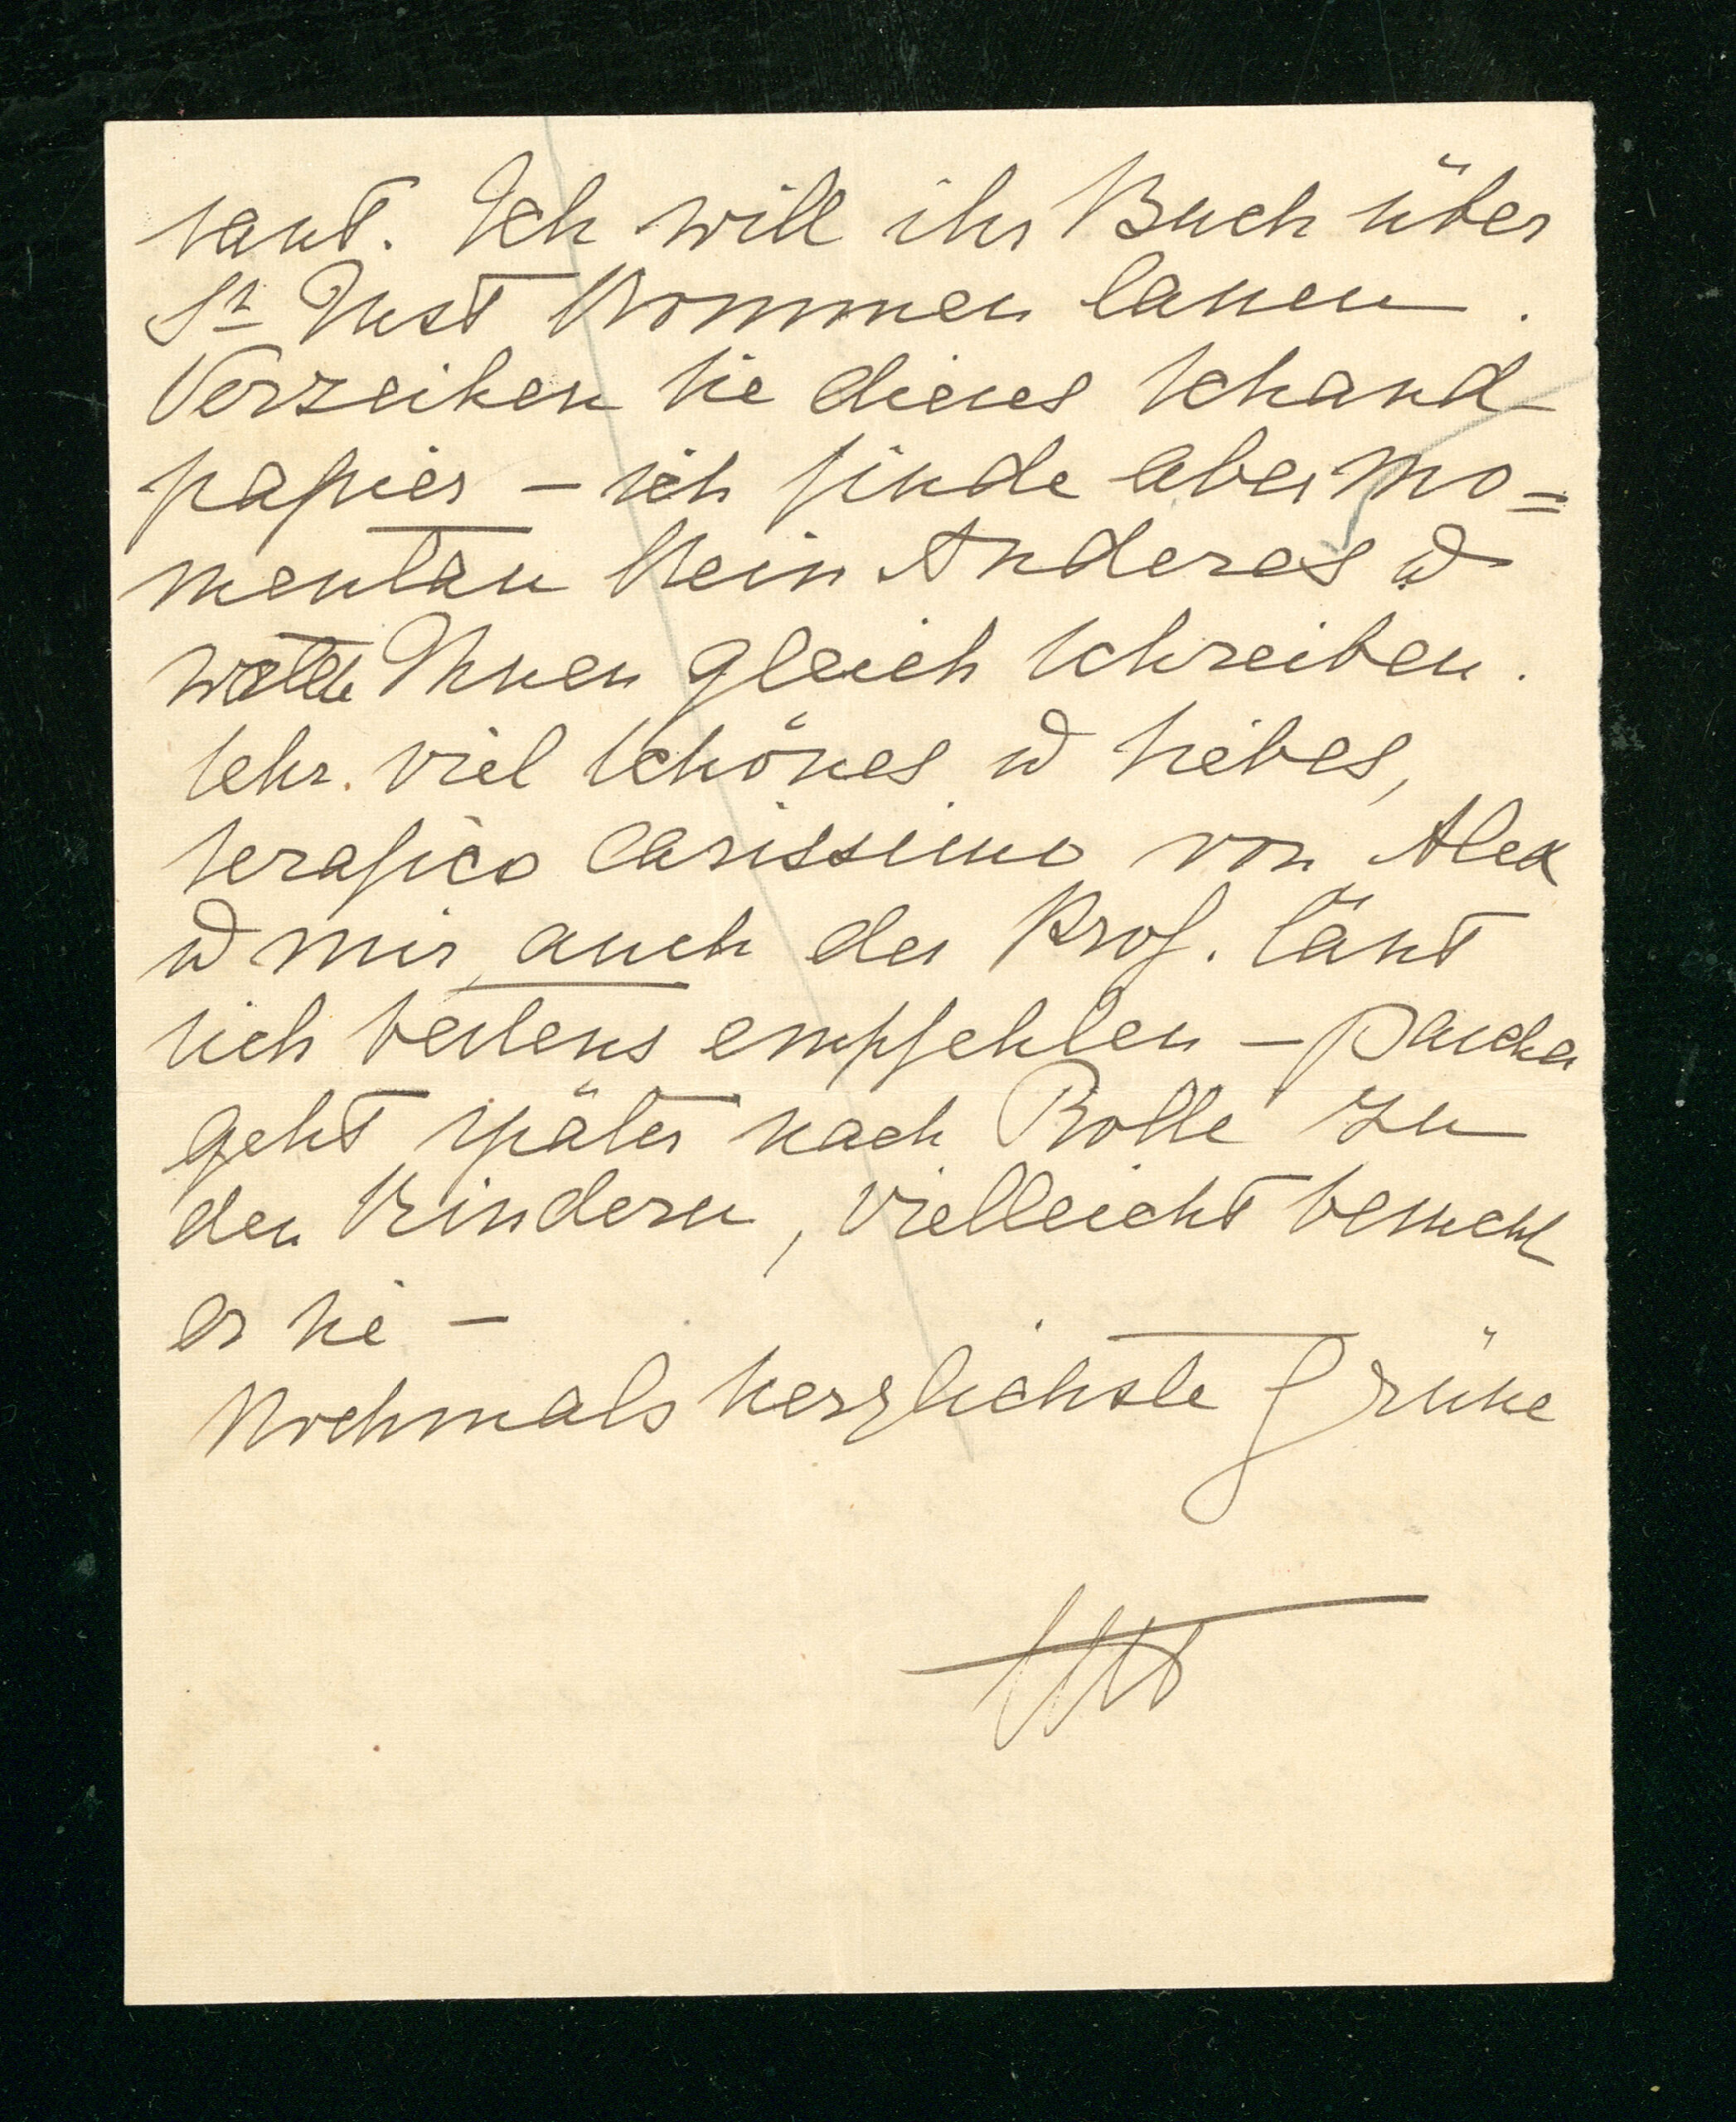 sant. Ich will ihr Buch über
St Just kommen lassen.
Verzeihen Sie dieses Schand-
papier – ich finde aber mo=
mentan kein Anderes u
wollte Ihnen gleich schreiben.
Sehr viel Schönes u Liebes,
Serafico carissimo von Alex
u mir, auch der Prof. lässt
sich bestens empfehlen – Pascha
geht später nach Rolle zu
den Kindern, vielleicht besucht
er Sie –
Nochmals herzlichste Grüsse